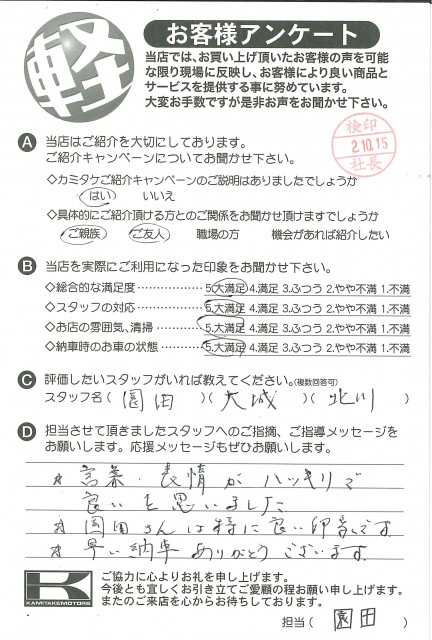 軽
お客様アンケート
当店では、お買い上げ頂いたお客様の声を可能
な限り現場に反映し、お客様により良い商品と
サービスを提供する事に努めています。
大変お手数ですが是非お声をお聞かせ下さい。
検印
2.10.15
社長
A 当店はご紹介を大切にしております。
ご紹介キャンペーンについてお聞かせ下さい。
◇カミタケご紹介キャンペーンのご説明はありましたでしょうか
はい いいえ
◇具体的にご紹介頂ける方とのご関係をお聞かせ頂けますでしょうか
ご親族 ご友人 職場の方 機会があれば紹介したい
B 当店を実際にご利用になった印象をお聞かせ下さい。
◆総合的な満足度 5.大満足 4.満足 3.ふつう 2.やや不満 1.不満
◆スタッフの対応 5.大満足 4.満足 3.ふつう 2.やや不満 1.不満
◆お店の雰囲気、清掃 5.大満足 4.満足 3.ふつう 2.やや不満 1.不満
◆納車時のお車の状態 5.大満足 4.満足 3.ふつう 2.やや不満 1.不満
C 評価したいスタッフがいれば教えてください。(複数回答可)
スタッフ名( 園田 )( 大城 )( 北川 )
D 担当させて頂きましたスタッフへのご指摘、ご指導メッセージを
お願いします。応援メッセージもぜひお願いします。
☆言葉・表情がハッキリで
良いを思いました
☆園田さんは特に良い印象です
☆早い納車ありがとうございます
K
KAMITAKEMOTORS
ご協力に心よりお礼を申し上げます。
今後とも宜しくお引き立てご愛顧の程お願い申し上げます。
またのご来店を心からお待ちしております。
担当( 園田 )